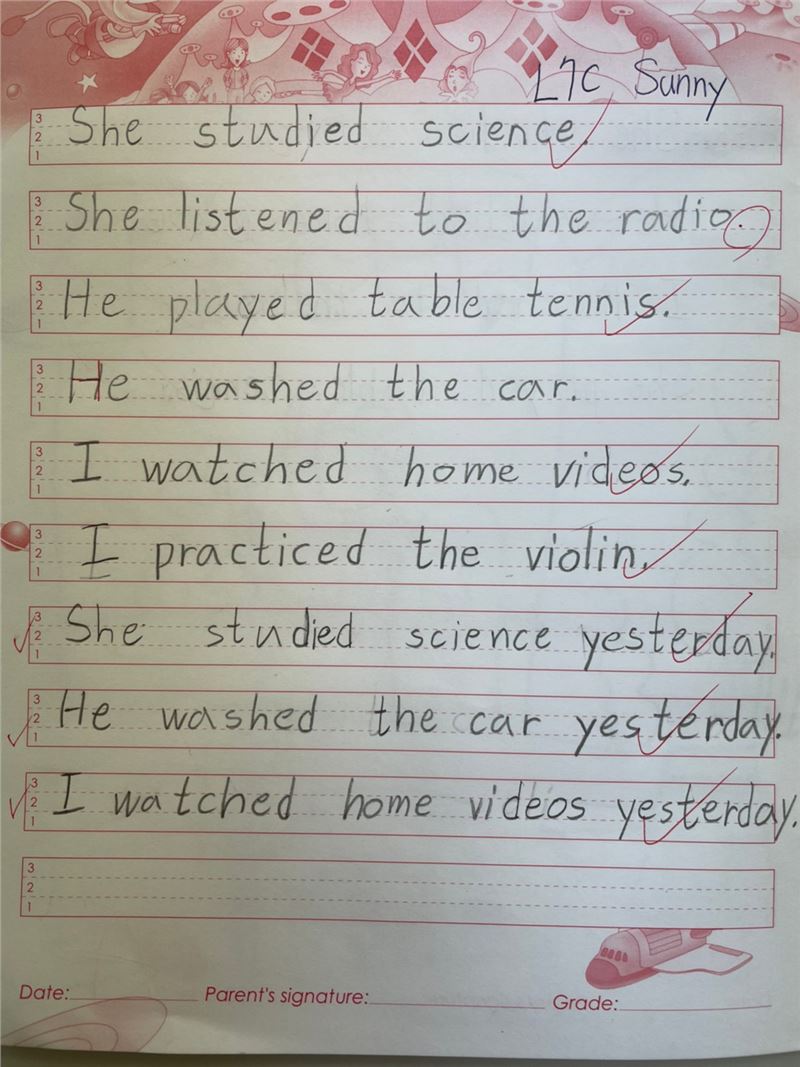 L7C Sunny
3 2 1 She studied science.
3 2 1 She listened to the radio.
3 2 1 He played table tennis.
3 2 1 He washed the car.
3 2 1 I watched home videos.
3 2 1 I practiced the violin.
3 2 1 She studied science yesterday.
3 2 1 He washed the car yesterday.
3 2 1 I watched home videos yesterday.
3 2 1
Date: Parent's signature: Grade: